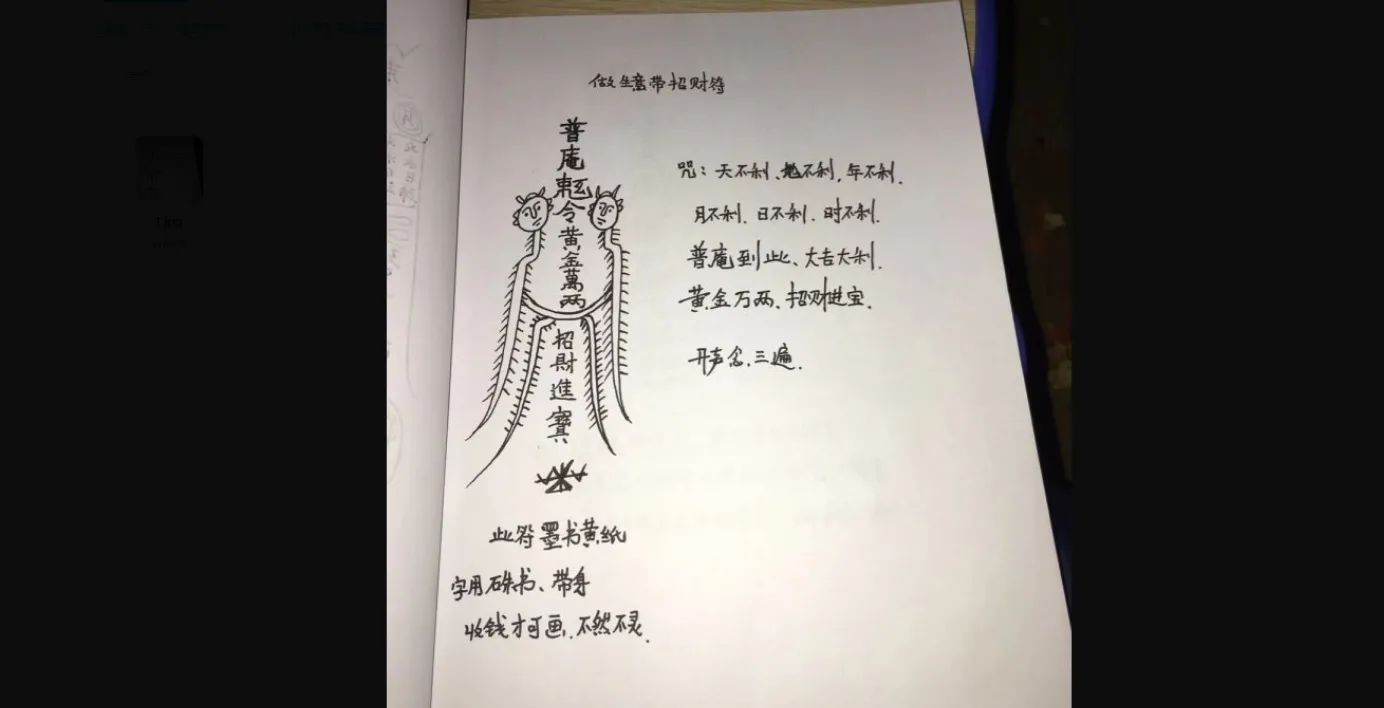 做生意带招财符
普庵勅令黄金萬两
招財進寳
咒：天不利、地不利，年不利．
月不利．日不利．时不利．
普庵到此、大吉大利．
黄金万两、招财进宝．
开声念．三遍．
此符墨书黄纸
字用硃书、带身
收钱才可画．不然不灵．